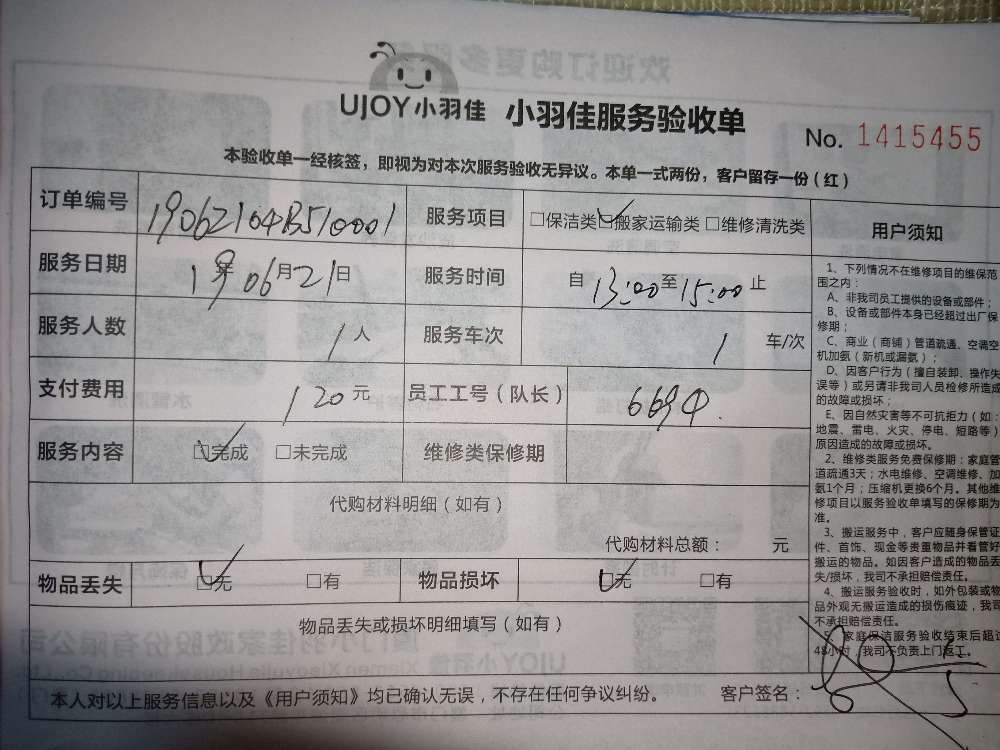 UJOY小羽佳 小羽佳服务验收单
No. 1415455
本验收单一经核签，即视为对本次服务验收无异议。本单一式两份，客户留存一份（红）
订单编号 19062104B510001 服务项目 □保洁类 ☑搬家运输类 □维修清洗类
服务日期 19年06月21日 服务时间 自 13:00 至 15:00 止
服务人数 1 人 服务车次 1 车/次
支付费用 120 元 员工工号（队长）
服务内容 ☑完成 □未完成 维修类保修期
代购材料明细（如有）
代购材料总额： 元
物品丢失 ☑无 □有 物品损坏 ☑无 □有
物品丢失或损坏明细填写（如有）
本人对以上服务信息以及《用户须知》均已确认无误，不存在任何争议纠纷。 客户签名：
用户须知
1、下列情况不在维修项目的维保范
围之内：
A、非我司员工提供的设备或部件；
B、设备或部件本身已经超过出厂保
修期；
C、商业（商铺）管道疏通、空调空
机加氨（新机或漏氨）；
D、因客户行为（擅自装卸、操作失
误等）或另请非我司人员检修所造成
的故障或损坏；
E、因自然灾害等不可抗拒力（如：
地震、雷电、火灾、停电、短路等）
原因造成的故障或损坏。
2、维修类服务免费保修期：家庭管
道疏通3天；水电维修、空调维修、加
氨1个月；压缩机更换6个月。其他维
修项目以服务验收单填写的保修期为
准。
3、搬运服务中，客户应随身保管证
件、首饰、现金等贵重物品并看管好
搬运的物品。如因客户造成的物品丢
失/损坏，我司不承担赔偿责任。
4、搬运服务验收时，如外包装或物
品外观无搬运造成的损伤痕迹，我司
不承担赔偿责任。
5、家庭保洁服务验收结束后超过
48小时，我司不负责上门返工。